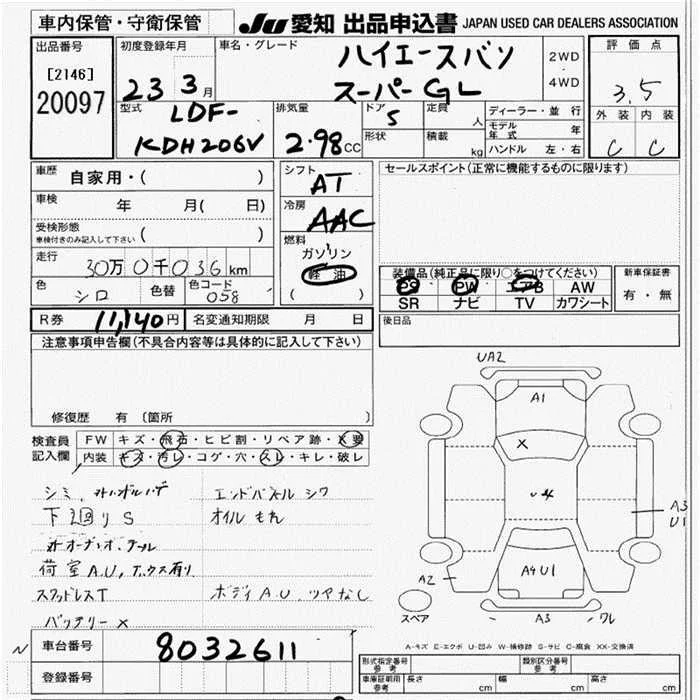 車内保管・守衛保管
JU 愛知 出品申込書 JAPAN USED CAR DEALERS ASSOCIATION
出品番号
[2146]
20097
初度登録年月
23 3月
車名・グレード
ハイエースバン
スーパーGL
2WD
4WD
評価点
3.5
外装 内装
C C
型式
LDF-
KDH206V
排気量
2.98cc
ドア
5
形状
定員 人
積載 kg
ディーラー・並行
モデル年式 年
ハンドル 左・右
車歴
自家用・( )
車検 年 月( 日)
受検形態
車検付きのみ記入して下さい ( )
走行 30万0千036km
色
シロ
色替
色コード
058
シフト
AT
冷房
AAC
燃料
ガソリン
軽油
( )
セールスポイント(正常に機能するものに限ります)
装備品(純正品に限り○をつけてください)
PS PW エアB AW
SR ナビ TV カワシート
新車保証書
有・無
R券 11,140円 名変通知期限 月 日
後日品
注意事項申告欄(不具合内容等は具体的に記入して下さい)
修復歴 有 〔箇所 〕
検査員
記入欄
FW キズ・飛石・ヒビ割・リペア跡・X要
内装 キズ・汚レ・コゲ・穴・スレ・キレ・破レ
エンドパネル シワ
下回り S
オイル もれ
荷室 A.U,
ボディ A.U. ツヤなし
スタッドレスT
バッテリー X
車台番号 8032611
登録番号
UA2
A1
X
A3
U1
A4U1
A2
スペア
A3
ワレ
A-キズ E-エクボ U-凹み W-補修跡 S-サビ C-腐食 XX-交換済
形式指定番号
参考
類別区分番号
参考
車庫証明用
参考
長さ cm 幅 cm 高さ cm